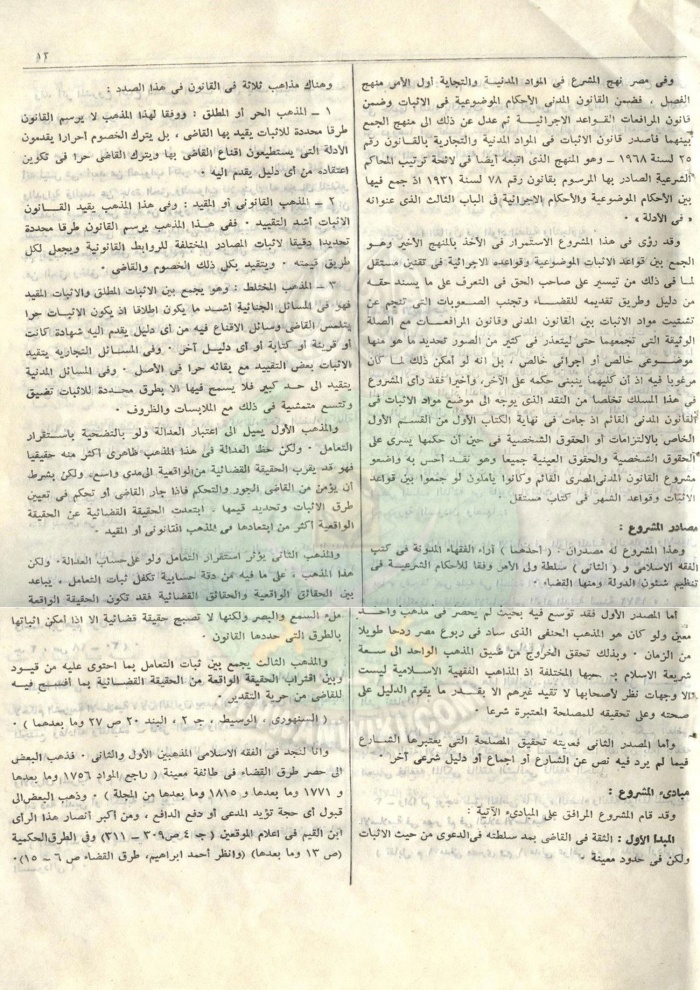 ١٢
وفى مصر نهج المشرع فى المواد المدنية والتجاية أول الأمر منهج
الفصل ، فضمن القانون المدنى الأحكام الموضوعية فى الاثبات وضمن
قانون المرافعات القواعد الاجرائية ثم عدل عن ذلك الى منهج الجمع
بينهما فأصدر قانون الاثبات فى المواد المدنية والتجارية بالقانون رقم
٢٥ لسنة ١٩٦٨ ــ وهو المنهج الذى اتبعه أيضا فى لائحة ترتيب المحاكم
الشرعية الصادر بها المرسوم بقانون رقم ٧٨ لسنة ١٩٣١ اذ جمع فيها
بين الأحكام الموضوعية والأحكام الاجرائية فى الباب الثالث الذى عنوانه
« فى الأدلة » ٠
وقد رؤى فى هذا المشروع الاستمرار فى الأخذ بالمنهج الأخير وهــو
الجمع بين قواعد الاثبات الموضوعية وقواعده الاجرائية فى تقنين مستقل
لما فى ذلك من تيسير على صاحب الحق فى التعرف على ما يسند حقــه
من دليل وطريق تقديمه للقضــاء وتجنب الصعوبات التى تنجم عن
تشتيت مواد الاثبات بين القانون المدنى وقانون المرافعــات مع الصلة
الوثيقة التى تجمعهما حتى ليتعذر فى كثير من الصور تحديد ما هو منها
موضــوعى خالص أو اجرائى خالص ، بل انه لو أمكن ذلك لما كان
مرغوبا فيه اذ أن كليهما ينبنى حكمه على الآخر، وأخيرا فقد رأى المشروع
فى هذا المسلك تخلصا من النقد الذى يوجه الى موضع مواد الاثبات فى
القانون المدنى القائم اذ جاءت فى نهاية الكتاب الأول من القسم الأول
الخاص بالالتزامات أو الحقوق الشخصية فى حين أن حكمها يسرى على
الحقوق الشخصية والحقوق العينية جميعا وهو نقــد أحس به واضعو
مشروع القانون المدنى المصرى القائم وكانوا يأملون لو جمعوا بين قواعد
الاثبات وقواعد الشهر فى كتاب مستقل ٠
مصادر المشروع :
وهذا المشروع له مصدران : ( أحدهما ) آراء الفقهاء المدونة فى كتب
الفقه الاسلامى و ( الثانى ) سلطة ولى الأمر وفقا للأحكام الشرعيــة فى
تنظيم شئون الدولة ومنها القضاء ٠
أما المصدر الأول فقد توسع فيه بحيث لم يحصر فى مذهب واحــد
معين ولو كان هو المذهب الحنفى الذى ساد فى ربوع مصر ردحا طويلا
من الزمان ٠ وبذلك تحقق الخروج من ضيق المذهب الواحد الى سعة
شريعة الاسلام بمذاهبها المختلفة اذ المذاهب الفقهية الاسلامية ليست
الا وجهات نظر لأصحابها لا تقيد غيرهم الا بقــدر ما يقوم الدليل على
صحته وعلى تحقيقه للمصلحة المعتبرة شرعا ٠
وأما المصدر الثانى فغايته تحقيق المصلحة التى يعتبرها الشــارع
فيما لم يرد فيه نص عن الشارع أو اجماع أو دليل شرعى آخر ٠
مبادىء المشروع :
وقد قام المشروع المرافق على المبادىء الآتية :
المبدأ الأول : الثقة فى القاضى بمد سلطته فى الدعوى من حيث الاثبات
ولكن فى حدود معينة ٠
وهناك مذاهب ثلاثة فى القانون فى هذا الصدد :
١ ــ المذهب الحر أو المطلق : ووفقا لهذا المذهب لا يرسم القانون
طرقا محددة للاثبات يقيد بها القاضى ، بل يترك الخصوم أحرارا يقدمون
الأدلة التى يستطيعون اقناع القاضى بها ويترك القاضى حرا فى تكوين
اعتقاده من أى دليل يقدم اليه ٠
٢ ــ المذهب القانونى أو المقيد : وفى هذا المذهب يقيد القــــانون
الاثبات أشد التقييد ٠ ففى هــذا المذهب يرسم القانون طرقا محددة
تحديدا دقيقا لاثبات المصادر المختلفة للروابط القانونية ويجعل لكل
طريق قيمته ٠ ويتقيد بكل ذلك الخصوم والقاضى ٠
٣ ــ المذهب المختلط : وهو يجمع بين الاثبات المطلق والاثبات المقيد
فهو فى المسائل الجنائية أشــد ما يكون اطلاقا اذ يكون الاثبــات حرا
يتلمس القاضى وسائل الاقناع فيه من أى دليل يقدم اليه شهادة كانت
أو قرينة أو كتابة أو أى دليــل آخر ٠ وفى المســائل التجارية يتقيد
الاثبات بعض التقييد مع بقائه حرا فى الأصل ٠ وفى المسائل المدنية
يتقيد الى حــد كبير فلا يسمح فيها الا بطرق محــددة للاثبات تضيق
وتتسع متمشية فى ذلك مع الملابسات والظروف ٠
والمذهب الأول يميل الى اعتبار العدالة ولو بالتضحية باســتقرار
التعامل ٠ ولكن حظ العدالة فى هذا المذهب ظاهرى أكثر منه حقيقيا
فهو قد يقرب الحقيقة القضائية من الواقعية الى مدى واسع، ولكن بشرط
أن يؤمن من القاضى الجور والتحكم فاذا جار القاضى أو تحكم فى تعيين
طرق الاثبات وتحديد قيمها ٠ ابتعدت الحقيقة القضائية عن الحقيقة
الواقعية أكثر من ابتعادها فى المذهب القانونى أو المقيد ٠
والمذهب الثانى يؤثر استقرار التعامل ولو على حساب العدالة٠ ولكن
هذا المذهب ، على ما فيه من دقة حسابية تكفل ثبات التعامل ٠ يباعد
بين الحقائق الواقعية والحقائق القضائية فقد تكون الحقيقة الواقعة
ملء السمع والبصر ولكنها لا تصبح حقيقة قضائية الا اذا أمكن اثباتها
بالطرق التى حددها القانون ٠
والمذهب الثالث يجمع بين ثبات التعامل بما احتوى عليه من قيــود
وبين اقتراب الحقيقة الواقعة من الحقيقة القضــائية بما أفســح فيــه
للقاضى من حرية التقدير ٠
( السنهورى ، الوسيط ، جـ ٢ ، البند ٢٠ ص ٢٧ وما بعدهما ) ٠
وانا لنجد فى الفقه الاسلامى المذهبين الأول والثانى ٠ فذهب البعض
الى حصر طرق القضاء فى طائفة معينة ( راجع المواد ١٧٥٦ وما بعدها
و ١٧٧١ وما بعدها و ١٨١٥ وما بعدها من المجلة ) ٠ وذهب البعض الى
قبول أى حجة تؤيد المدعى أو دفع الدافع ، ومن أكبر أنصار هذا الرأى
ابن القيم فى اعلام الموقعين ( جـ ٤ ص ٣٠٩ ــ ٣١١) وفى الطرق الحكمية
(ص ١٣ وما بعدها) (وانظر أحمد ابراهيم، طرق القضاء ص ٦ ــ ١٥)٠